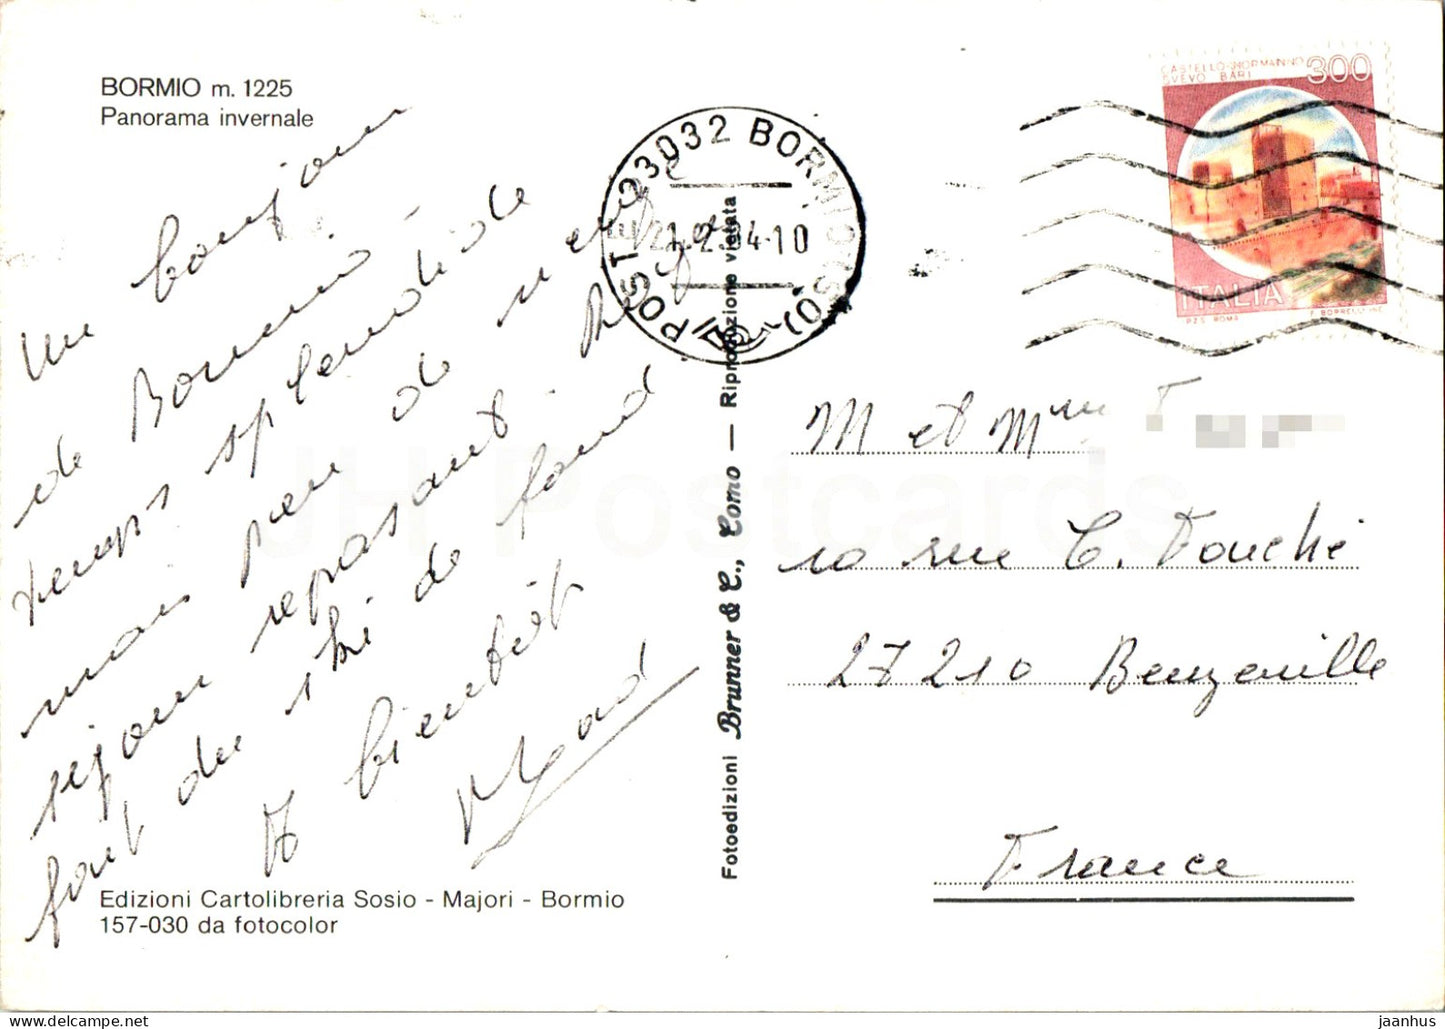 BORMIO m. 1225
Panorama invernale
Un bonjour
de Bormio
temps splendide
mais peu de neige
séjour reposant.
font du ski de fond
A bientôt
POSTE 23032 BORMIO (SO)
21.2.84-10
CASTELLO NORMANNO
SVEVO BARI
300
ITALIA
P.Z.S. ROMA
F. BORRELLI INC.
M et Mme
10 rue C. Fouché
27210 Beuzeville
France
Fotoedizioni Brunner & C., Como — Riproduzione vietata
Edizioni Cartolibreria Sosio - Majori - Bormio
157-030 da fotocolor
JH Postcards
jaanhus @ delcampe.net